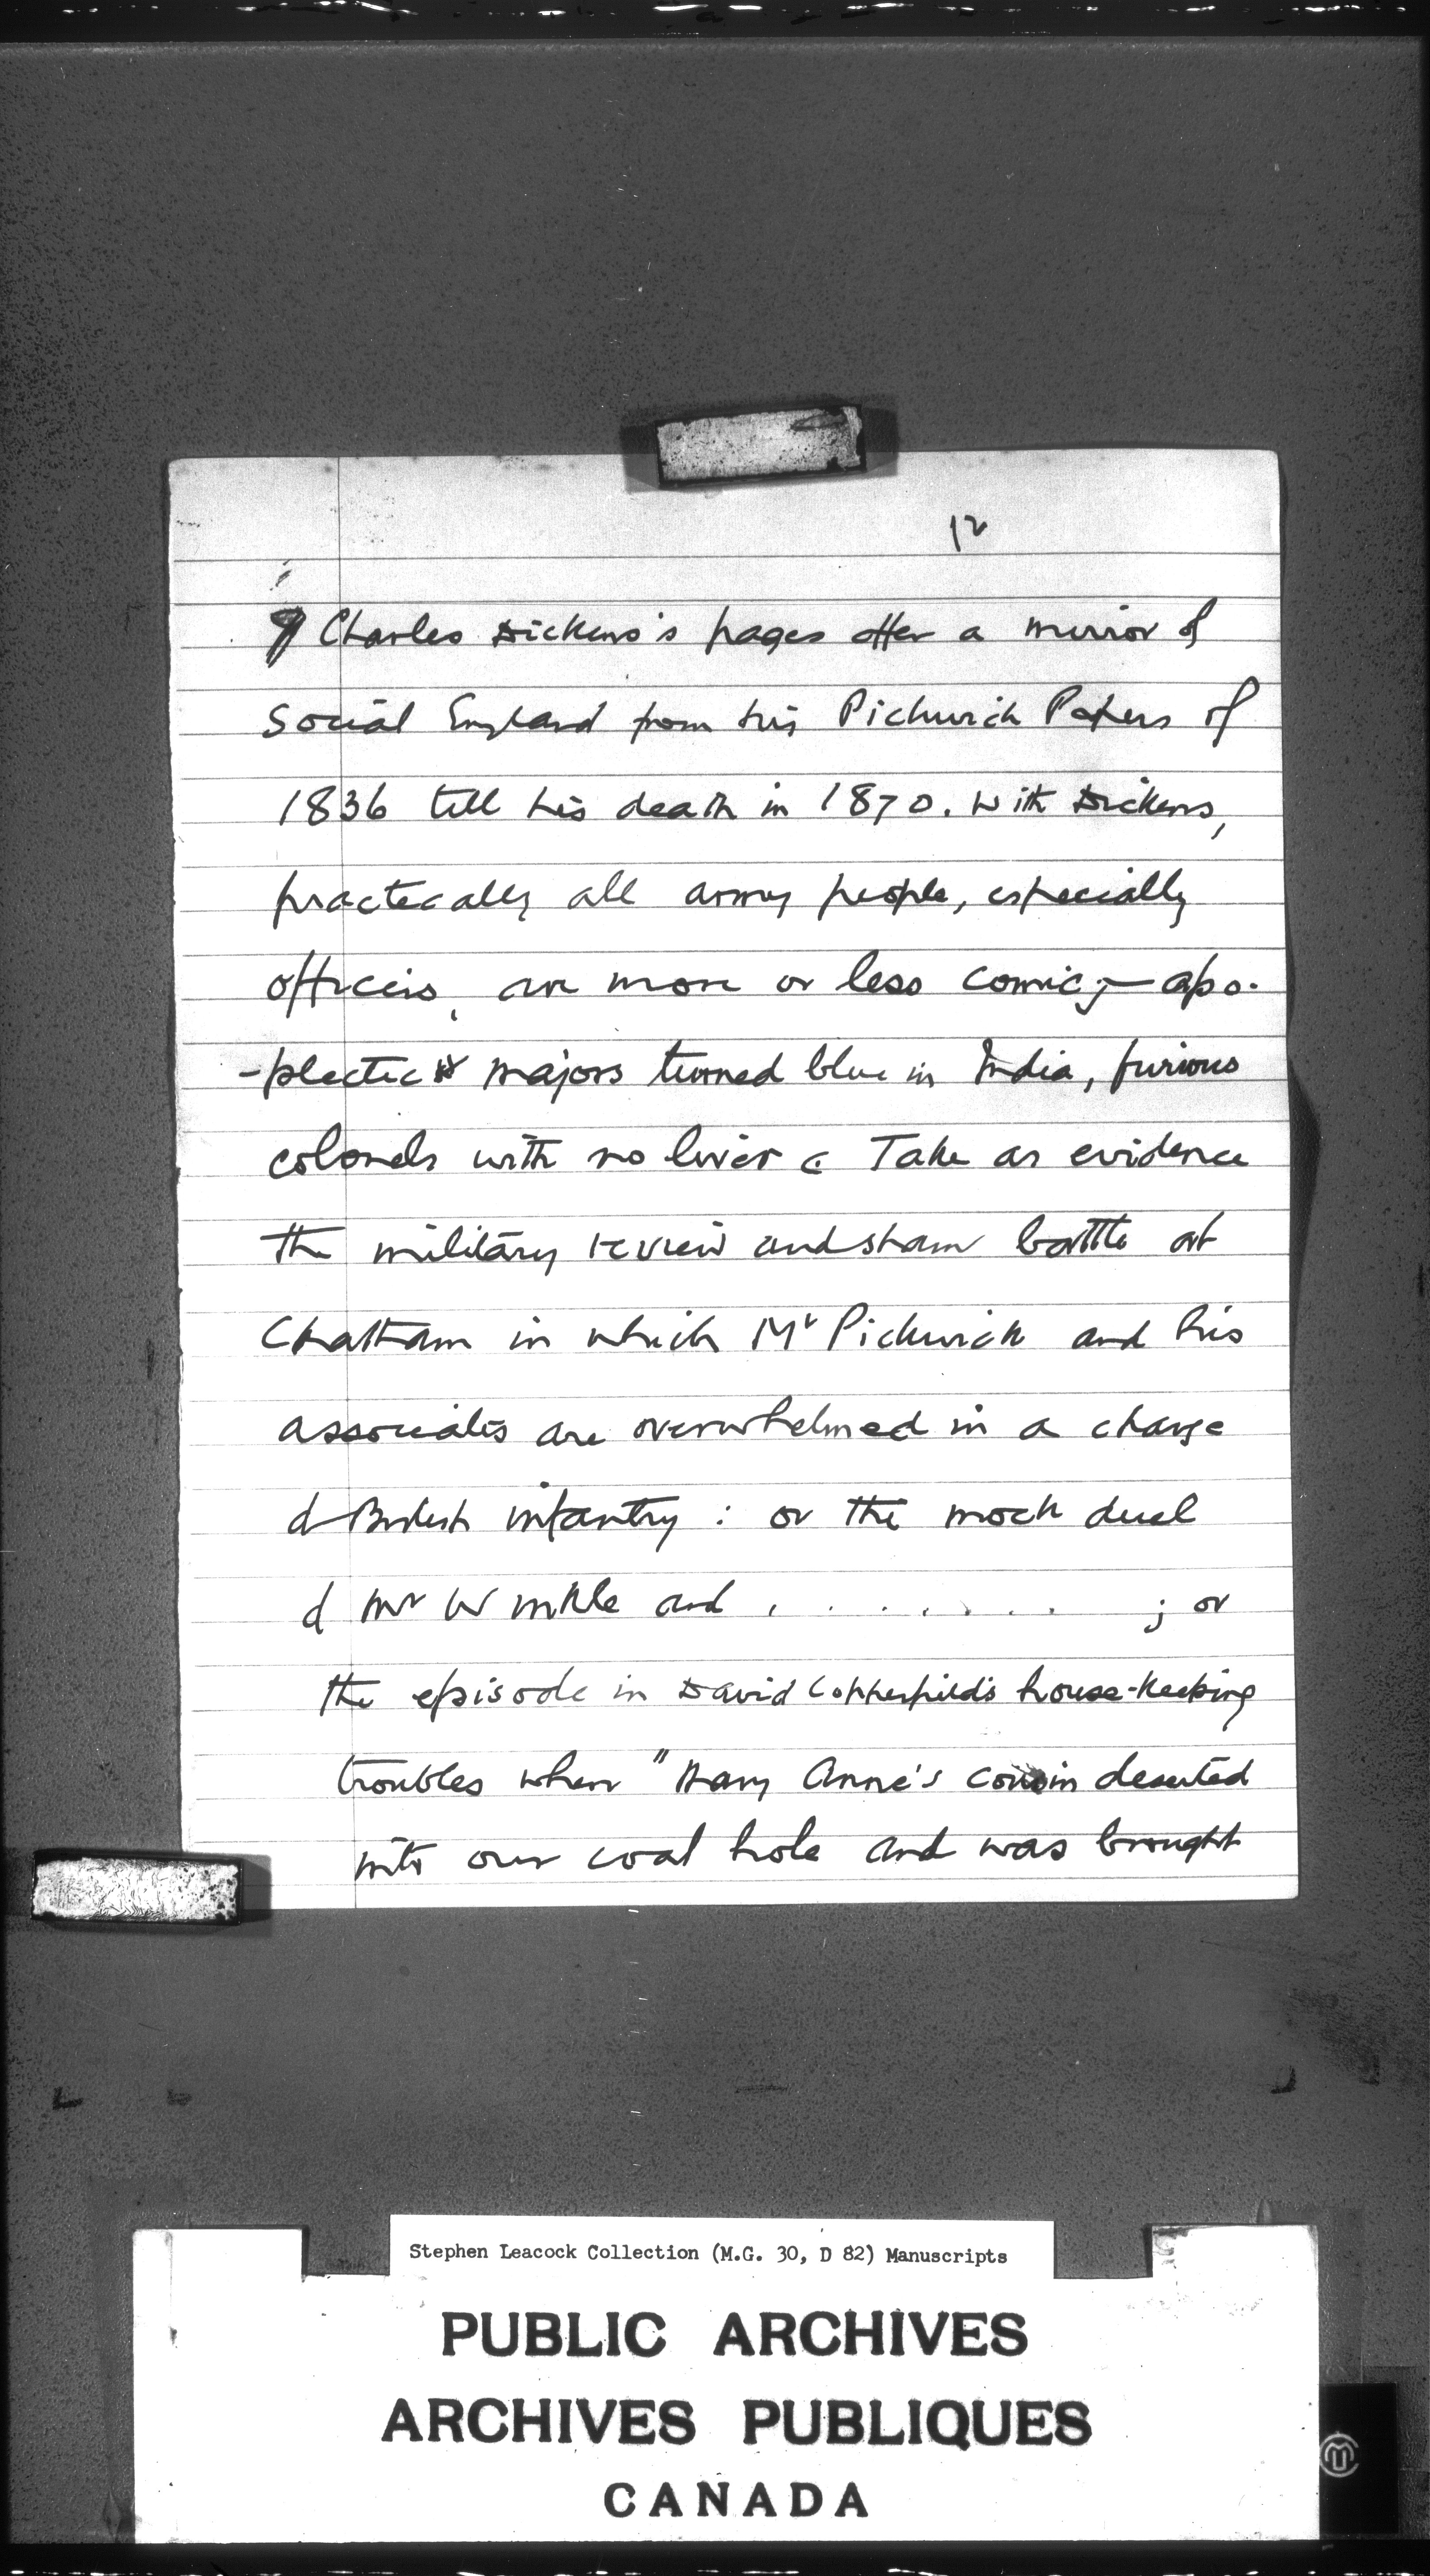 12
¶ Charles Dickens's pages offer a mirror of
social England from his Pickwick Papers of
1836 till his death in 1870. With Dickens,
practically all army people, especially
officers, are more or less comic;— apo-
-plectic majors turned blue in India, furious
colonels with no liver. Take as evidence
the military review and sham battle at
Chatham in which Mr Pickwick and his
associates are overwhelmed in a charge
of British infantry : or the mock duel
of Mr Winkle and . . . . . . . . ; or
the episode in David Copperfield's house-keeping
troubles when "Mary Anne's cousin deserted
into our coal hole and was brought
Stephen Leacock Collection (M.G. 30, D 82) Manuscripts
PUBLIC ARCHIVES
ARCHIVES PUBLIQUES
CANADA